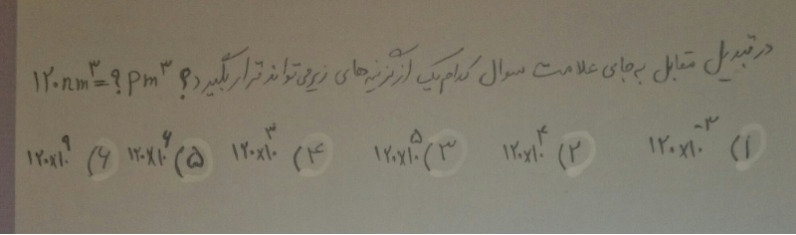 در تبدیل مقابل به جای علامت سوال کدام یک از گزینه‌های زیر می‌تواند قرار بگیرد؟ ۱۲۰nm³=? pm³
۱) ۱۲۰×۱۰⁻³ ۲) ۱۲۰×۱۰⁴ ۳) ۱۲۰×۱۰⁵ ۴) ۱۲۰×۱۰³ ۵) ۱۲۰×۱۰⁶ ۶) ۱۲۰×۱۰⁹